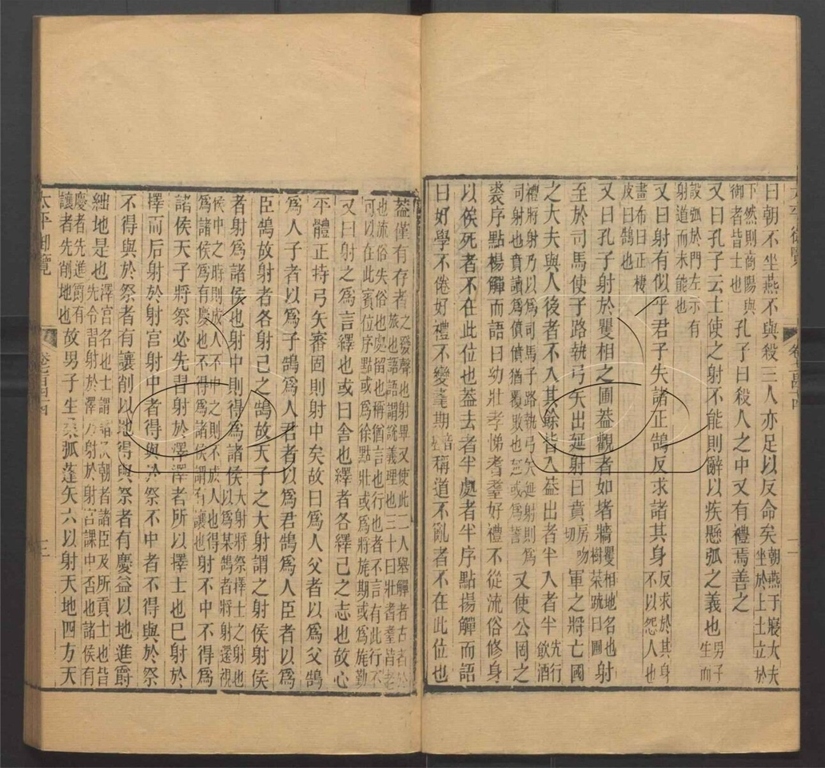 曰朝不坐燕不與殺三人亦足以反命矣朝燕于寢大夫坐於上士立於
下然則商陽與御者皆士也孔子曰殺人之中又有禮焉善之
又曰孔子云士使之射不能則辭以疾懸弧之義也男子生而
設弧於門左示有射道而未能也
又曰射有似乎君子失諸正鵠反求諸其身反求於其身不以怨人也
畫布曰正棲皮曰鵠也
又曰孔子射於矍相之圃蓋觀者如堵牆矍相地名也樹菜蔬曰圃射
至於司馬使子路執弓矢出延射曰賁軍之將亡國
之大夫與人後者不入其餘皆入蓋出者半入者半先行飲酒
禮將射乃以為司馬子路執弓矢延射則為司射也賁讀為僨僨猶覆敗也又使公罔之
裘序點揚觶而語曰幼壯孝悌耆耋好禮不從流俗修身
以俟死者不在此位也蓋去者半處者半序點揚觶而語
曰好學不倦好禮不變耄期稱道不亂者不在此位也
蓋僅有存者之發聲也射畢又使此二人舉觶者古者於
旅也語語謂說義理也三十曰壯耆耋皆老
也流俗失俗也處留也稱猶言也行也者不言有此行不
可以在此賓位序點或為徐點壯或為將旄期或為旄勤
又曰射之為言繹也或曰舍也繹者各繹己之志也故心
平體正持弓矢審固則射中矣故曰為人父者以為父鵠
為人子者以為子鵠為人君者以為君鵠為人臣者以為
臣鵠故射者各射己之鵠故天子之大射謂之射侯射侯
者射為諸侯也射中則得為諸侯大射將祭擇士之射也以為某鵠者將射還視
侯中之時則成人不中之則不成人也得為諸侯為有慶也不得為諸侯謂有讓也射不中不得為
諸侯天子將祭必先習射於澤澤者所以擇士也已射於
擇而后射於射宮射中者得與於祭不中者不得與於祭
不得與於祭者有讓削以地得與祭者有慶益以地進爵
絀地是也澤宮名也士謂諸侯朝者諸臣及所貢士也皆
先令習射於澤乃射於射宮課中否也諸侯有
慶者先進爵有讓者先削地也故男子生桑弧蓬矢六以射天地四方天
太平御覽
三